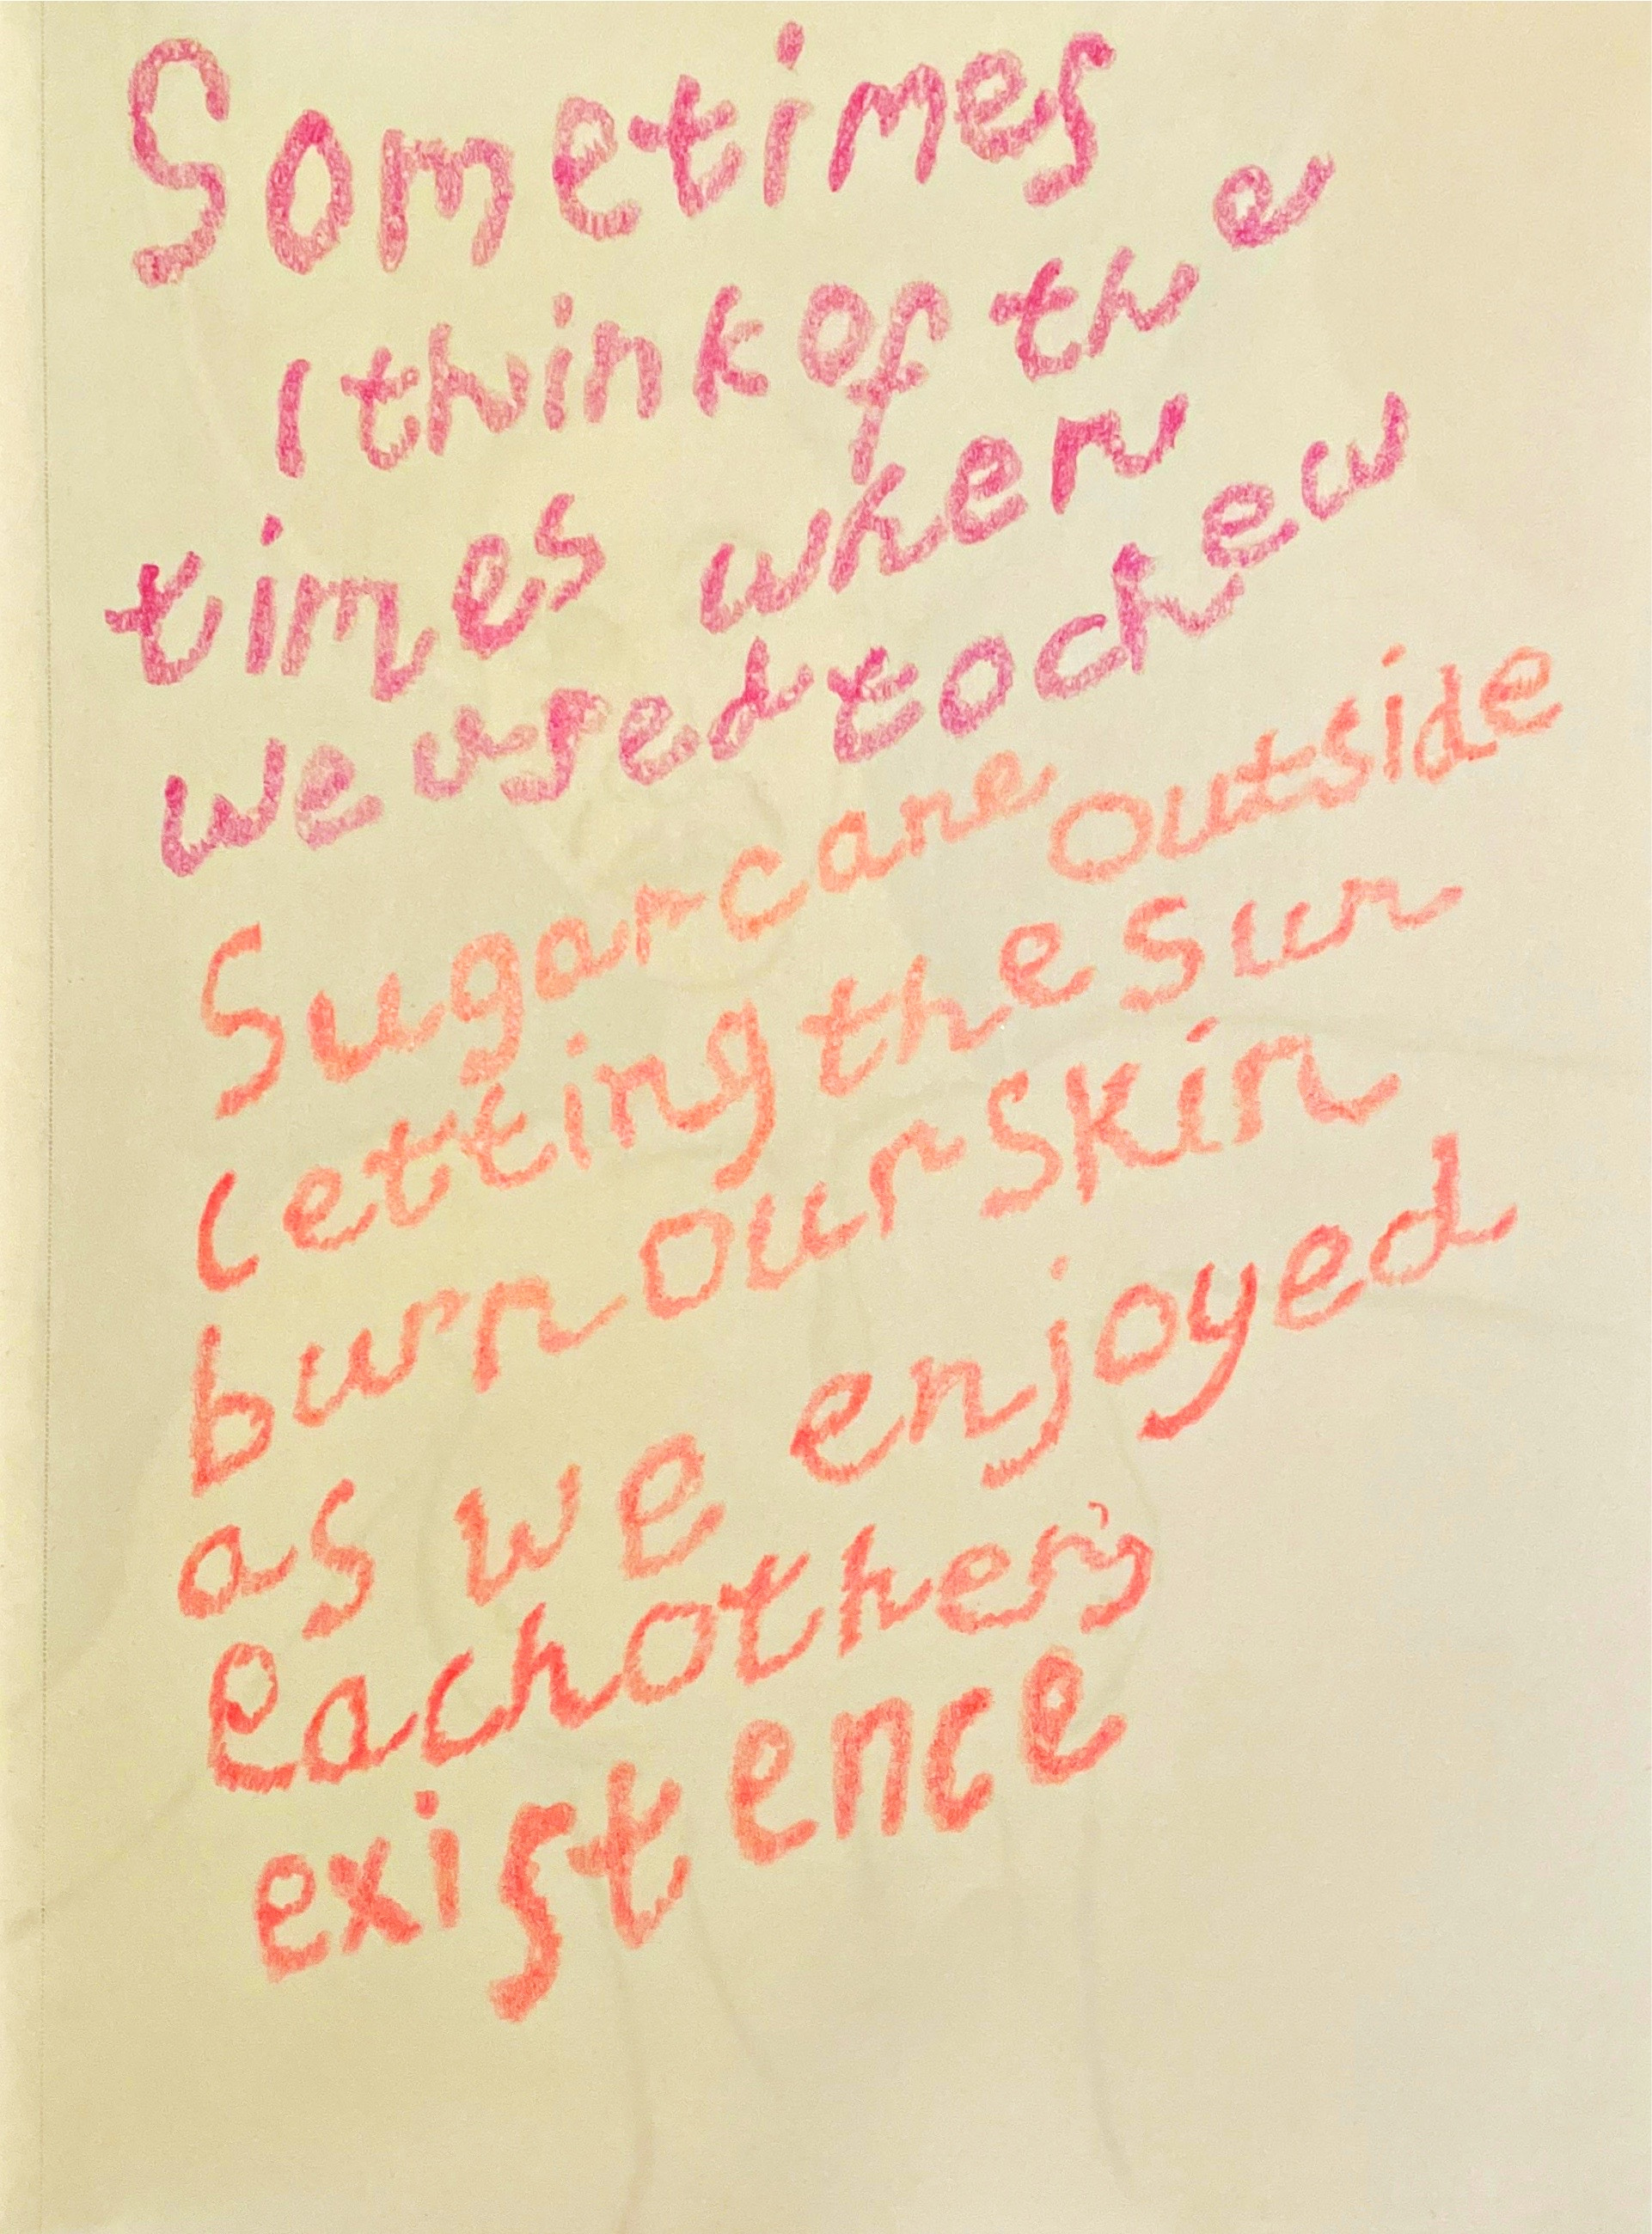 Sometimes
I think of the
times when
we used to chew
Sugarcane outside
letting the sun
burn our skin
as we enjoyed
eachother's
existence